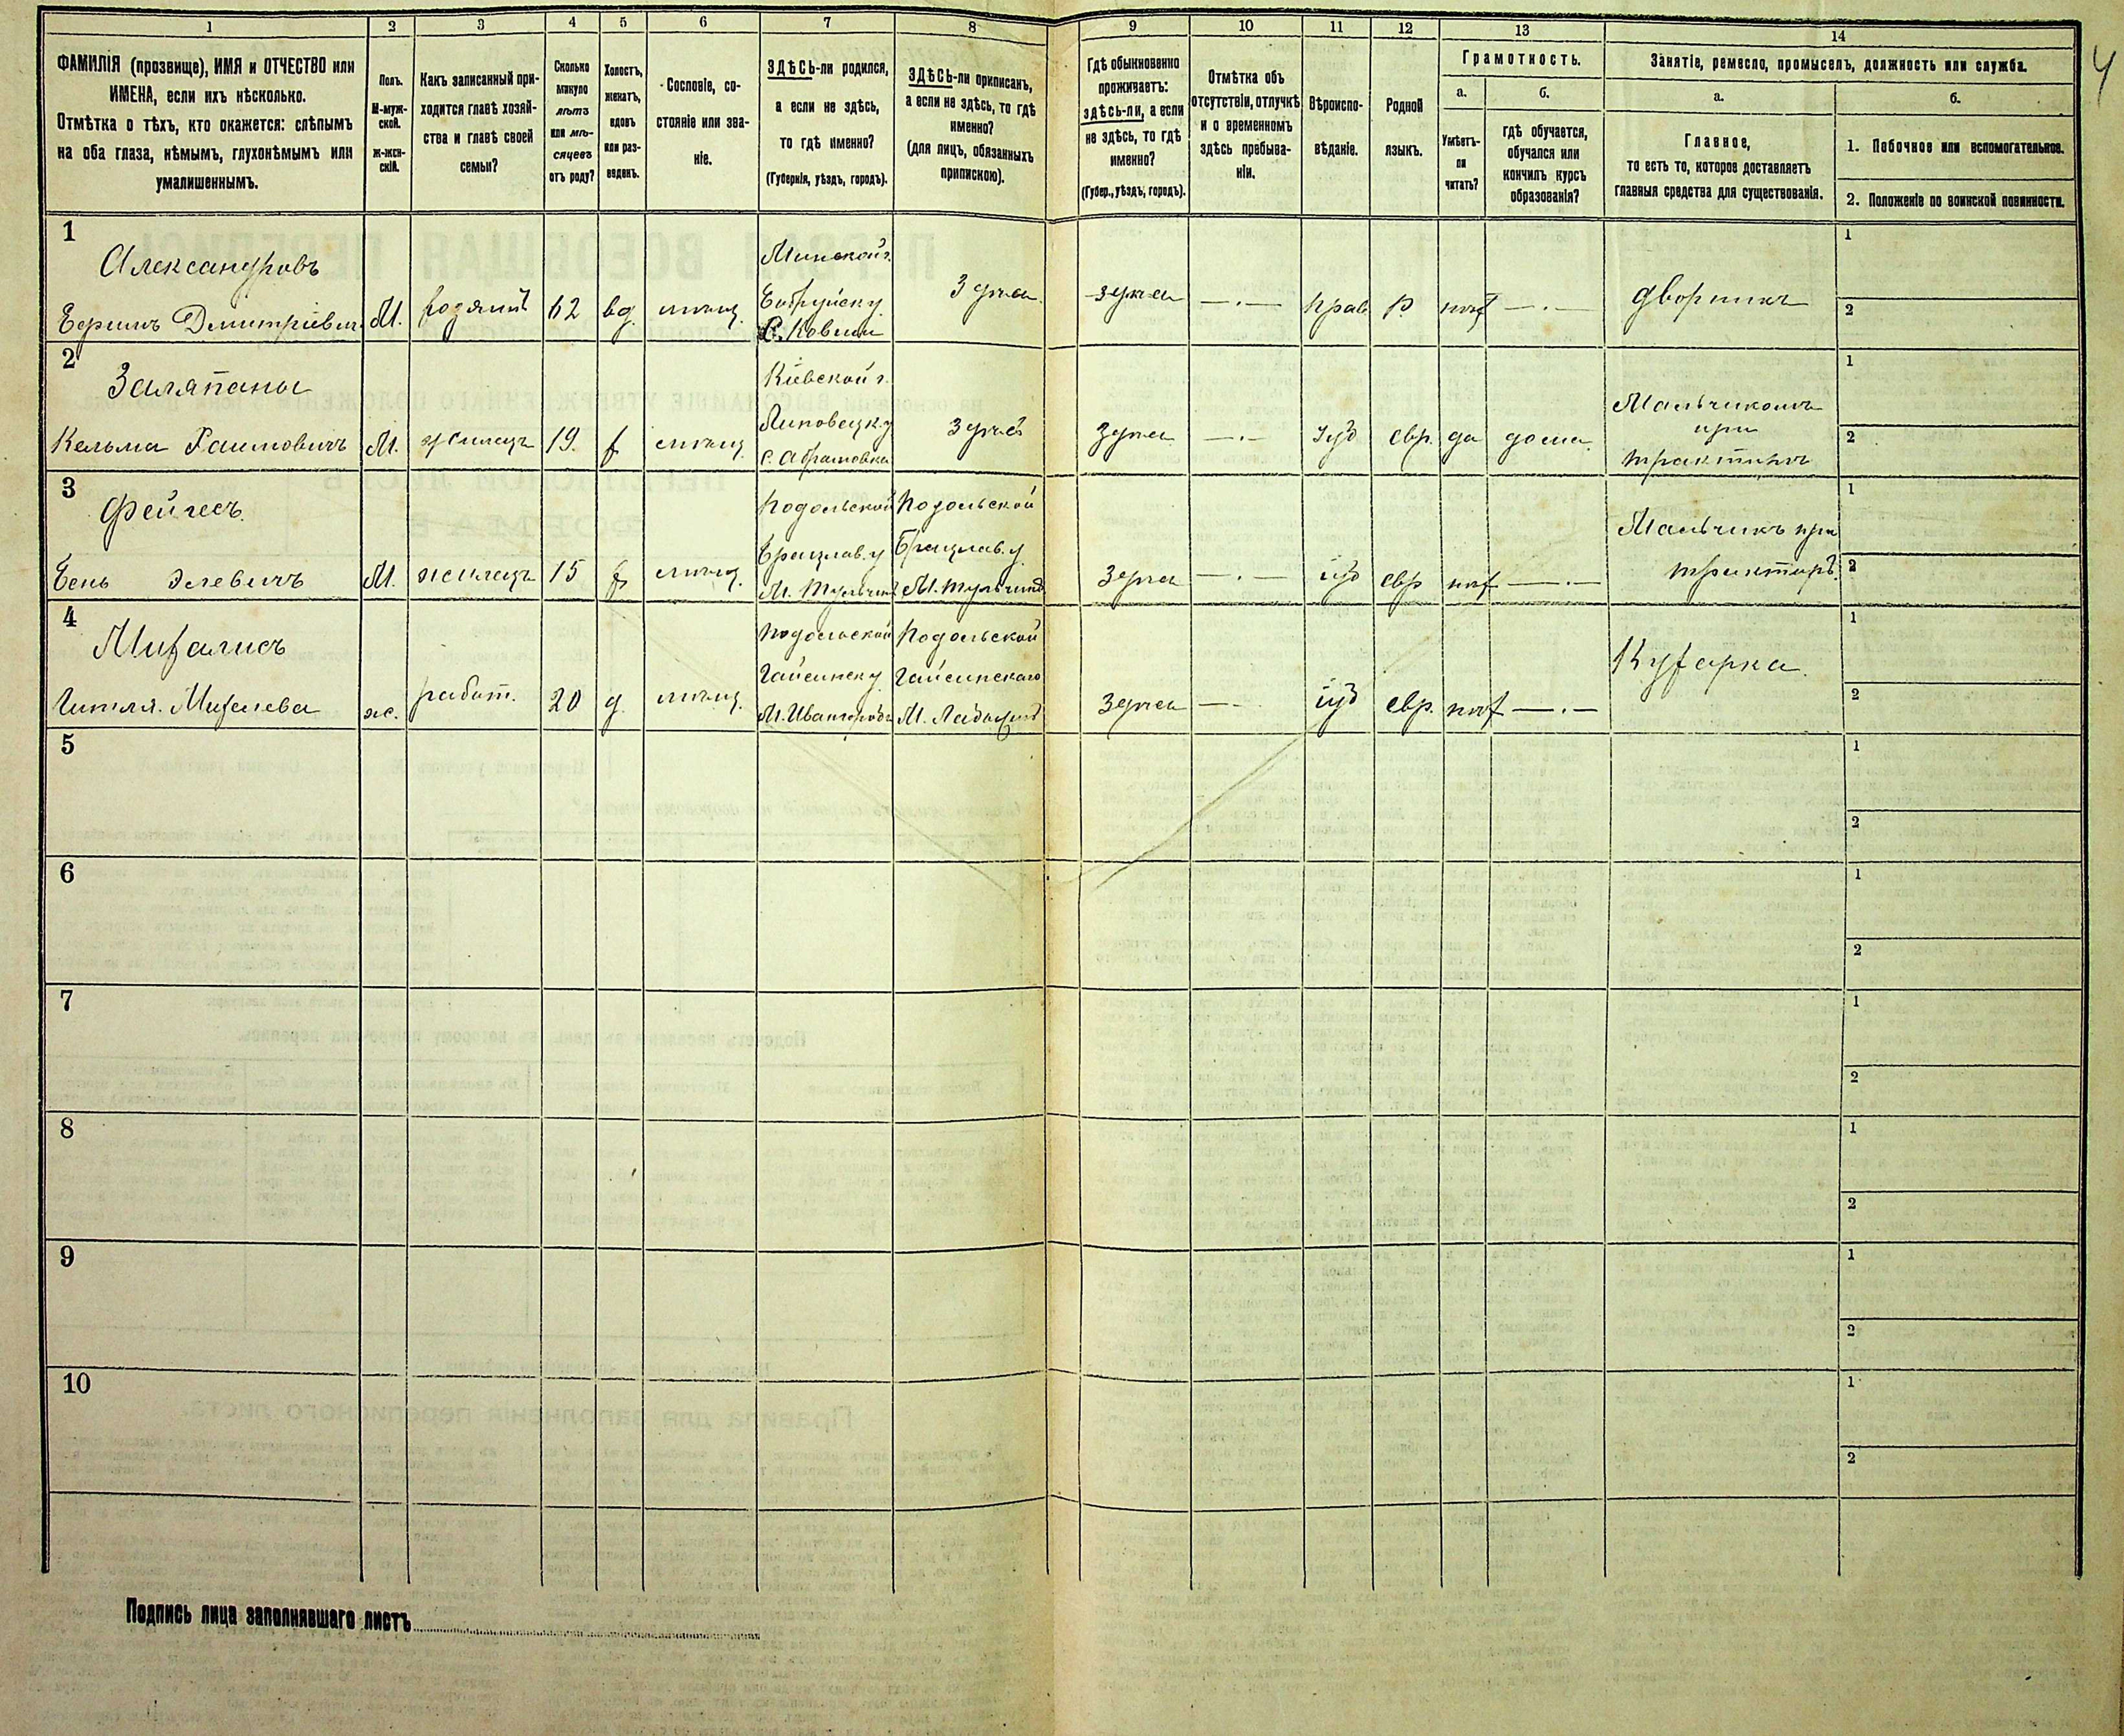 1 2 3 4 5 6 7 8 9 10 11 12 13 14
ФАМИЛІЯ (прозвище), ИМЯ и ОТЧЕСТВО или
ИМЕНА, если ихъ нѣсколько.
Отмѣтка о тѣхъ, кто окажется: слѣпымъ
на оба глаза, нѣмымъ, глухонѣмымъ или
умалишеннымъ.
Полъ.
М-муж-
ской.
ж-жен-
скій.
Какъ записанный при-
ходится главѣ хозяй-
ства и главѣ своей
семьи?
Сколько
минуло
лѣтъ
или мѣ-
сяцевъ
отъ роду?
Холостъ,
женатъ,
вдовъ
или раз-
веденъ.
Сословіе, со-
стояніе или зва-
ніе.
ЗДѢСЬ-ли родился,
а если не здѣсь,
то гдѣ именно?
(Губернія, уѣздъ, городъ).
ЗДѢСЬ-ли приписанъ,
а если не здѣсь, то гдѣ
именно?
(для лицъ, обязанныхъ
припискою).
Гдѣ обыкновенно
проживаетъ:
здѣсь-ли, а если
не здѣсь, то гдѣ
именно?
(Губер., уѣздъ, городъ).
Отмѣтка объ
отсутствіи, отлучкѣ
и о временномъ
здѣсь пребыва-
ніи.
Вѣроиспо-
вѣданіе.
Родной
языкъ.
Грамотность.
а.
Умѣетъ-
ли
читать?
б.
гдѣ обучается,
обучался или
кончилъ курсъ
образованія?
Занятіе, ремесло, промыселъ, должность или служба.
а.
Главное,
то есть то, которое доставляетъ
главныя средства для существованія.
б.
1. Побочное или вспомогательное.
2. Положеніе по воинской повинности.
4
1
Александровъ
Дмитріевичъ
М.
хозяинъ
62
вд.
мѣщ.
Минской г.
Бобруйск у
Здѣсь
Здѣсь
—.—
прав
Р.
нѣт
—.—
дворникъ
1
2
2
Кельма
М.
жилецъ
19.
х
мѣщ.
Кіевской г.
Липовецк у
с. Абрамовка
Здѣсь
Здѣсь
—.—
Іуд
евр.
да
дома
Мальчикомъ
при
трактирѣ
1
2
3
Бень
М.
жилецъ
15
х
мѣщ.
Подольской
Брацлав. у
М. Тульчинъ
Подольской
Брацлав. у.
М. Тульчинѣ
Здѣсь
—.—
іуд
евр
нѣт
—.—
Мальчикъ при
трактирѣ.
1
2
4
Гитля.
ж.
работ.
20
д.
мѣщ.
Подольской
Гайсинск у
Подольской
Гайсинскаго
М. Ладыжинѣ
Здѣсь
—.—
іуд
евр.
нѣт
—.—
Кухарка
1
2
5
1
2
6
1
2
7
1
2
8
1
2
9
1
2
10
1
2
Подпись лица заполнявшаго листъ